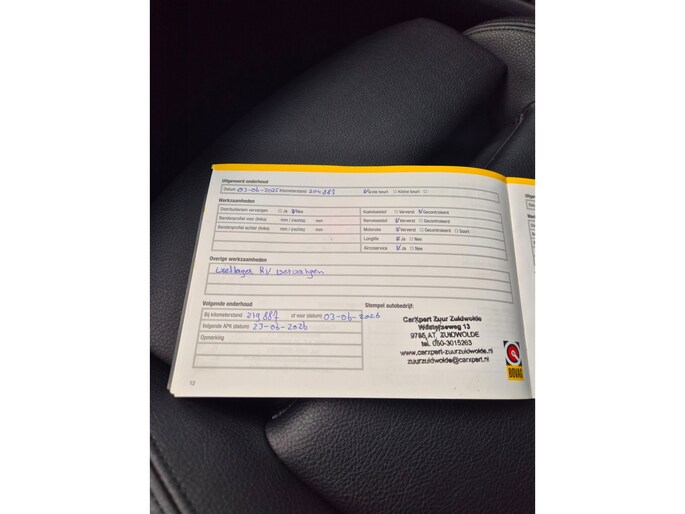 Uitgevoerd onderhoud
Datum 03-06-2025 Kilometerstand 204.887 Grote beurt Kleine beurt
Werkzaamheden
Distributieriem vervangen Ja Nee
Koelvloeistof Ververst Gecontroleerd
Bandenprofiel voor (links) mm / (rechts) mm
Remvloeistof Ververst Gecontroleerd
Bandenprofiel achter (links) mm / (rechts) mm
Motorolie Ververst Gecontroleerd Soort
Longlife Ja Nee
Aircoservice Ja Nee
Overige werkzaamheden
wiellager RV vervangen
Volgende onderhoud
Stempel autobedrijf:
Bij kilometerstand 219.887 of voor (datum) 03-06-2026
Volgende APK (datum) 23-06-2026
Opmerking
CarXpert Zuur Zuidwolde
Wolddijk
weg 13
9785 AT, ZUIDWOLDE
tel. 050-3015263
www.carxpert-zuurzuidwolde.nl
zuurzuidwolde@carxpert.nl
BOVAG
12